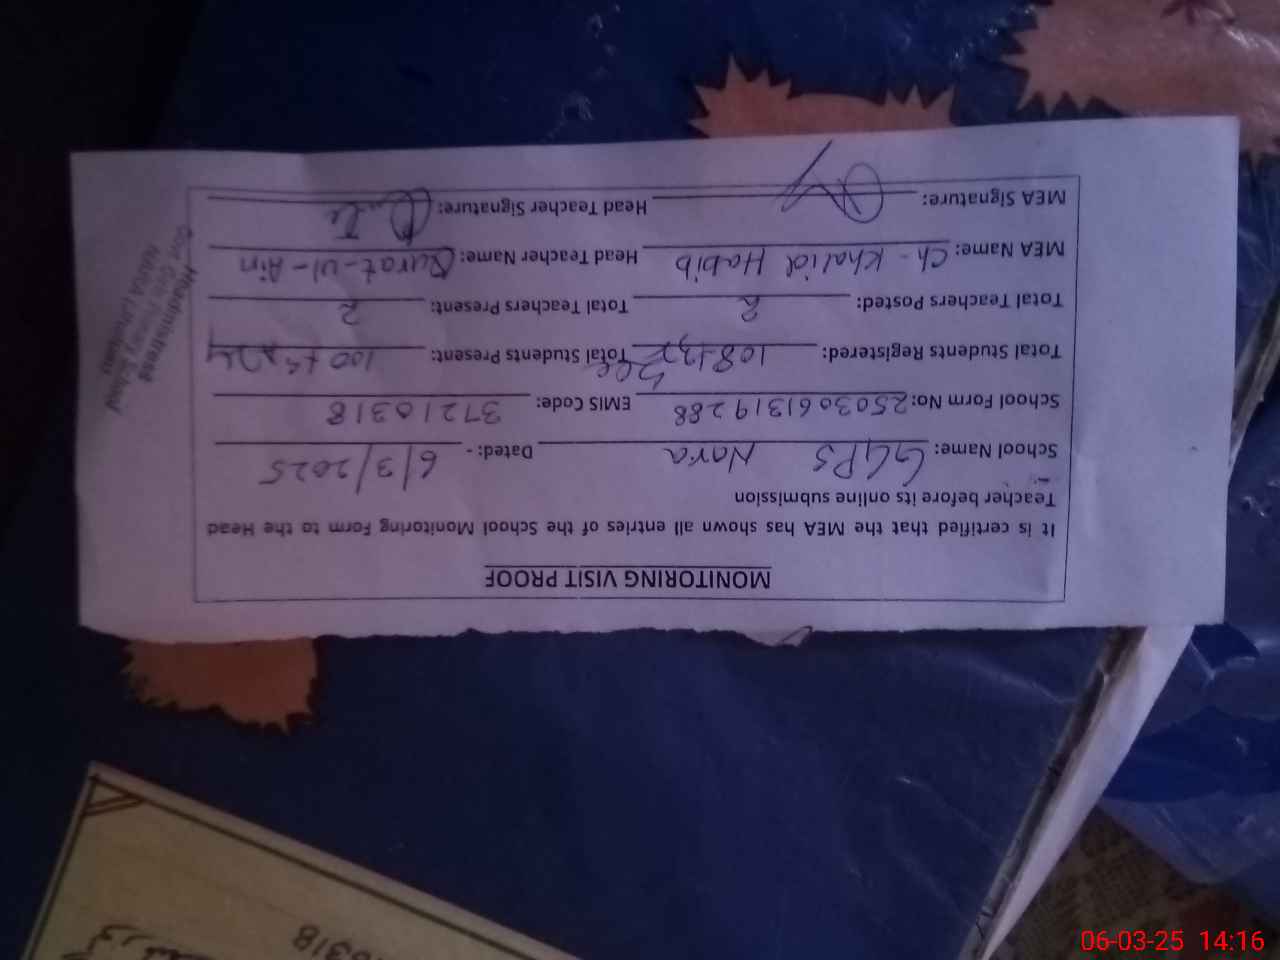 MONITORING VISIT PROOF
It is certified that the MEA has shown all entries of the School Monitoring Form to the Head
Teacher before its online submission
School Name: GGPS Nara Dated: - 6/3/2025
School Form No: 2503061319288 EMIS Code: 37210318
Total Students Registered: 108+32 Total Students Present: 100+
Total Teachers Posted: 2 Total Teachers Present: 2
MEA Name: Ch- Khalid Habib Head Teacher Name: Qurat-ul-Ain
MEA Signature: Head Teacher Signature:
Headmistress
Govt Girls Primary School
NARA
0318
06-03-25 14:16